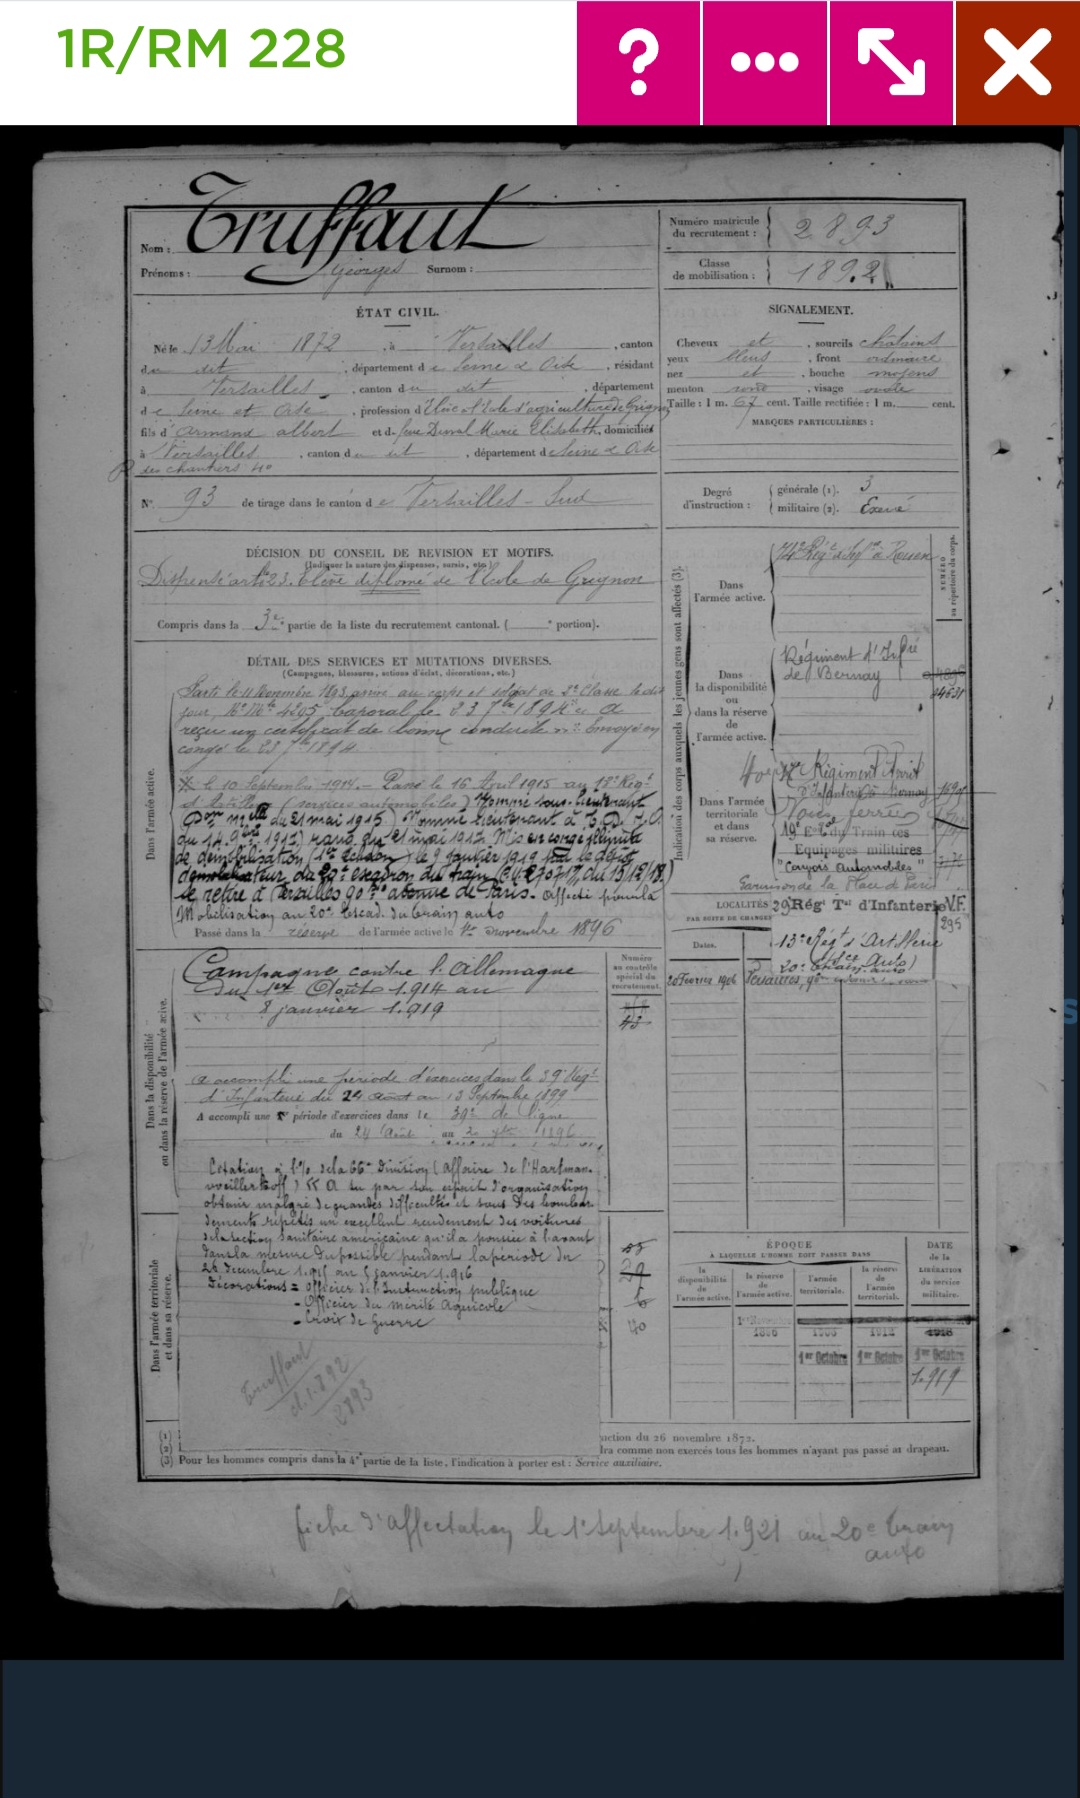 1R/RM 228
Nom : Truffaut
Prénoms : Georges Surnom :
Numéro matricule du recrutement : 2893
Classe de mobilisation : 1892
ÉTAT CIVIL.
Né le 13 Mai 1872, à Versailles, canton
du dit, département de Seine & Oise, résidant
à Versailles, canton du dit, département
de Seine et Oise, profession d'Elève à l'Ecole d'agriculture de Grignon
fils d'Armand Albert et de feue Marie Elisabeth, domiciliés
à Versailles, canton du dit, département de Seine & Oise
des chantiers 40
N° 93 de tirage dans le canton de Versailles - Sud
SIGNALEMENT.
Cheveux et, sourcils châtains
yeux bleus, front ordinaire
nez et, bouche moyens
menton rond, visage ovale
Taille : 1 m. 67 cent. Taille rectifiée : 1 m. cent.
MARQUES PARTICULIÈRES :
Degré d'instruction : générale (1). 3
militaire (2). Exercé
DÉCISION DU CONSEIL DE REVISION ET MOTIFS.
(Indiquer la nature des dispenses, sursis, etc.)
Dispensé art. 23. Elève diplomé de l'Ecole de Grignon
Compris dans la 3e partie de la liste du recrutement cantonal. ( e portion).
DÉTAIL DES SERVICES ET MUTATIONS DIVERSES.
(Campagnes, blessures, actions d'éclat, décorations, etc.)
Dans l'armée active.
Parti le 11 Novembre 1893, arrivé au corps et soldat de 2e Classe le dit
jour, No Mle 4205. Caporal le 23 7bre 1894. A
reçu un certificat de bonne conduite. Envoyé en
congé le 23 7bre 1894
le 10 Septembre 1914. - Passé le 16 Avril 1915 au 13e Régt
d'Artillerie (services automobiles) Nommé sous-lieutenant
du 21 mai 1915) Nommé lieutenant à T.T.
du 14 9bre 1917) rang du 21 mai 1917. Mis en congé illimité
de démobilisation (1er échelon) le 9 Janvier 1919 par le dépôt
démobilisateur du 20e escadron du train
se retire à Versailles 90 avenue de Paris. Affecté pour la
Mobilisation au 20e Escad. du train auto
Passé dans la réserve de l'armée active le 1er novembre 1896
Dans la disponibilité ou dans la réserve de l'armée active.
Campagne contre l'Allemagne
du 1er Août 1.914 au
8 janvier 1.919
A accompli une période d'exercices dans le 39e Régt
d'Infanterie du 24 Août au 13 Septembre 1899
A accompli une période d'exercices dans le 39e de ligne
du 24 Août au
Numéro au contrôle spécial du recrutement.
43
Dans l'armée territoriale et dans sa réserve.
Citation à l'O/ de la 66e Division (affaire de l'Hartman-
-willerkoff) "A su par son esprit d'organisation
obtenir malgré de grandes difficultés et sous des bombar-
dements répétés un excellent rendement des voitures
de la section sanitaire américaine qu'il a poussée à l'avant
dans la mesure du possible pendant la période du
24 décembre 1.915 au 5 janvier 1.916
Décorations = Officier de l'Instruction publique
- Officier du mérite agricole
- Croix de Guerre
Truffaut
cl. 1.892
2893
29
40
Indication des corps auxquels les jeunes gens sont affectés (3).
NUMÉRO au répertoire du corps.
Dans l'armée active.
74e Régt d'Infie à Rouen
Dans la disponibilité ou dans la réserve de l'armée active.
Régiment d'Infie
de Bernay
Dans l'armée territoriale et dans sa réserve.
Régiment Territ
d'Infanterie Bernay
Voies ferrées
19e Eon du Train des
Equipages militaires
"Convois Automobiles"
Garnison de la Place de Paris
29e Régt Tal d'Infanterie V.F.
295
13e Régt d'Artillerie
20e train auto
LOCALITÉS
PAR SUITE DE CHANGE
Dates.
20 Février 1906 Versailles,
ÉPOQUE
A LAQUELLE L'HOMME DOIT PASSER DANS
la disponibilité de l'armée active.
la réserve de l'armée active.
l'armée territoriale.
la réserve de l'armée territorial.
DATE de la LIBÉRATION du service militaire.
1er Novembre 1896
1906
1912
1918
1er Octobre
1er Octobre
1er Octobre
1.919
uction du 26 novembre 1872.
dra comme non exercés tous les hommes n'ayant pas passé au drapeau.
(3) Pour les hommes compris dans la 4e partie de la liste, l'indication à porter est : Service auxiliaire.
fiche d'affectation le 1er septembre 1.921 au 20e train
auto